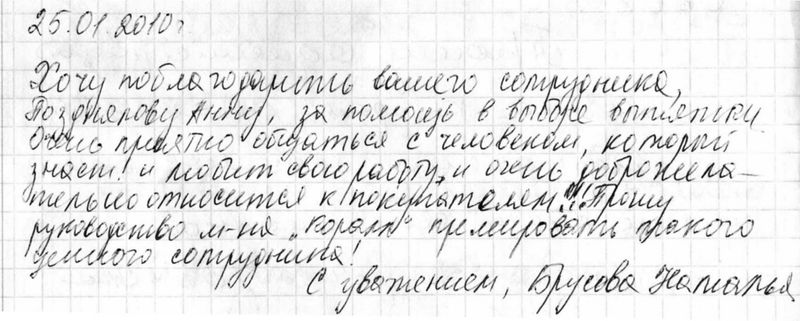 25.01.2010г.
Хочу поблагодарить вашего сотрудника,
Позднякову Анну, за помощь в выборе вытяжки
Очень приятно общаться с человеком, который
знает! и любит свою работу, и очень доброжела-
тельно относится к покупателям!!! Прошу
руководство м-на „Коралл“ премировать такого
ценного сотрудника!
С уважением, Брусова Наталья